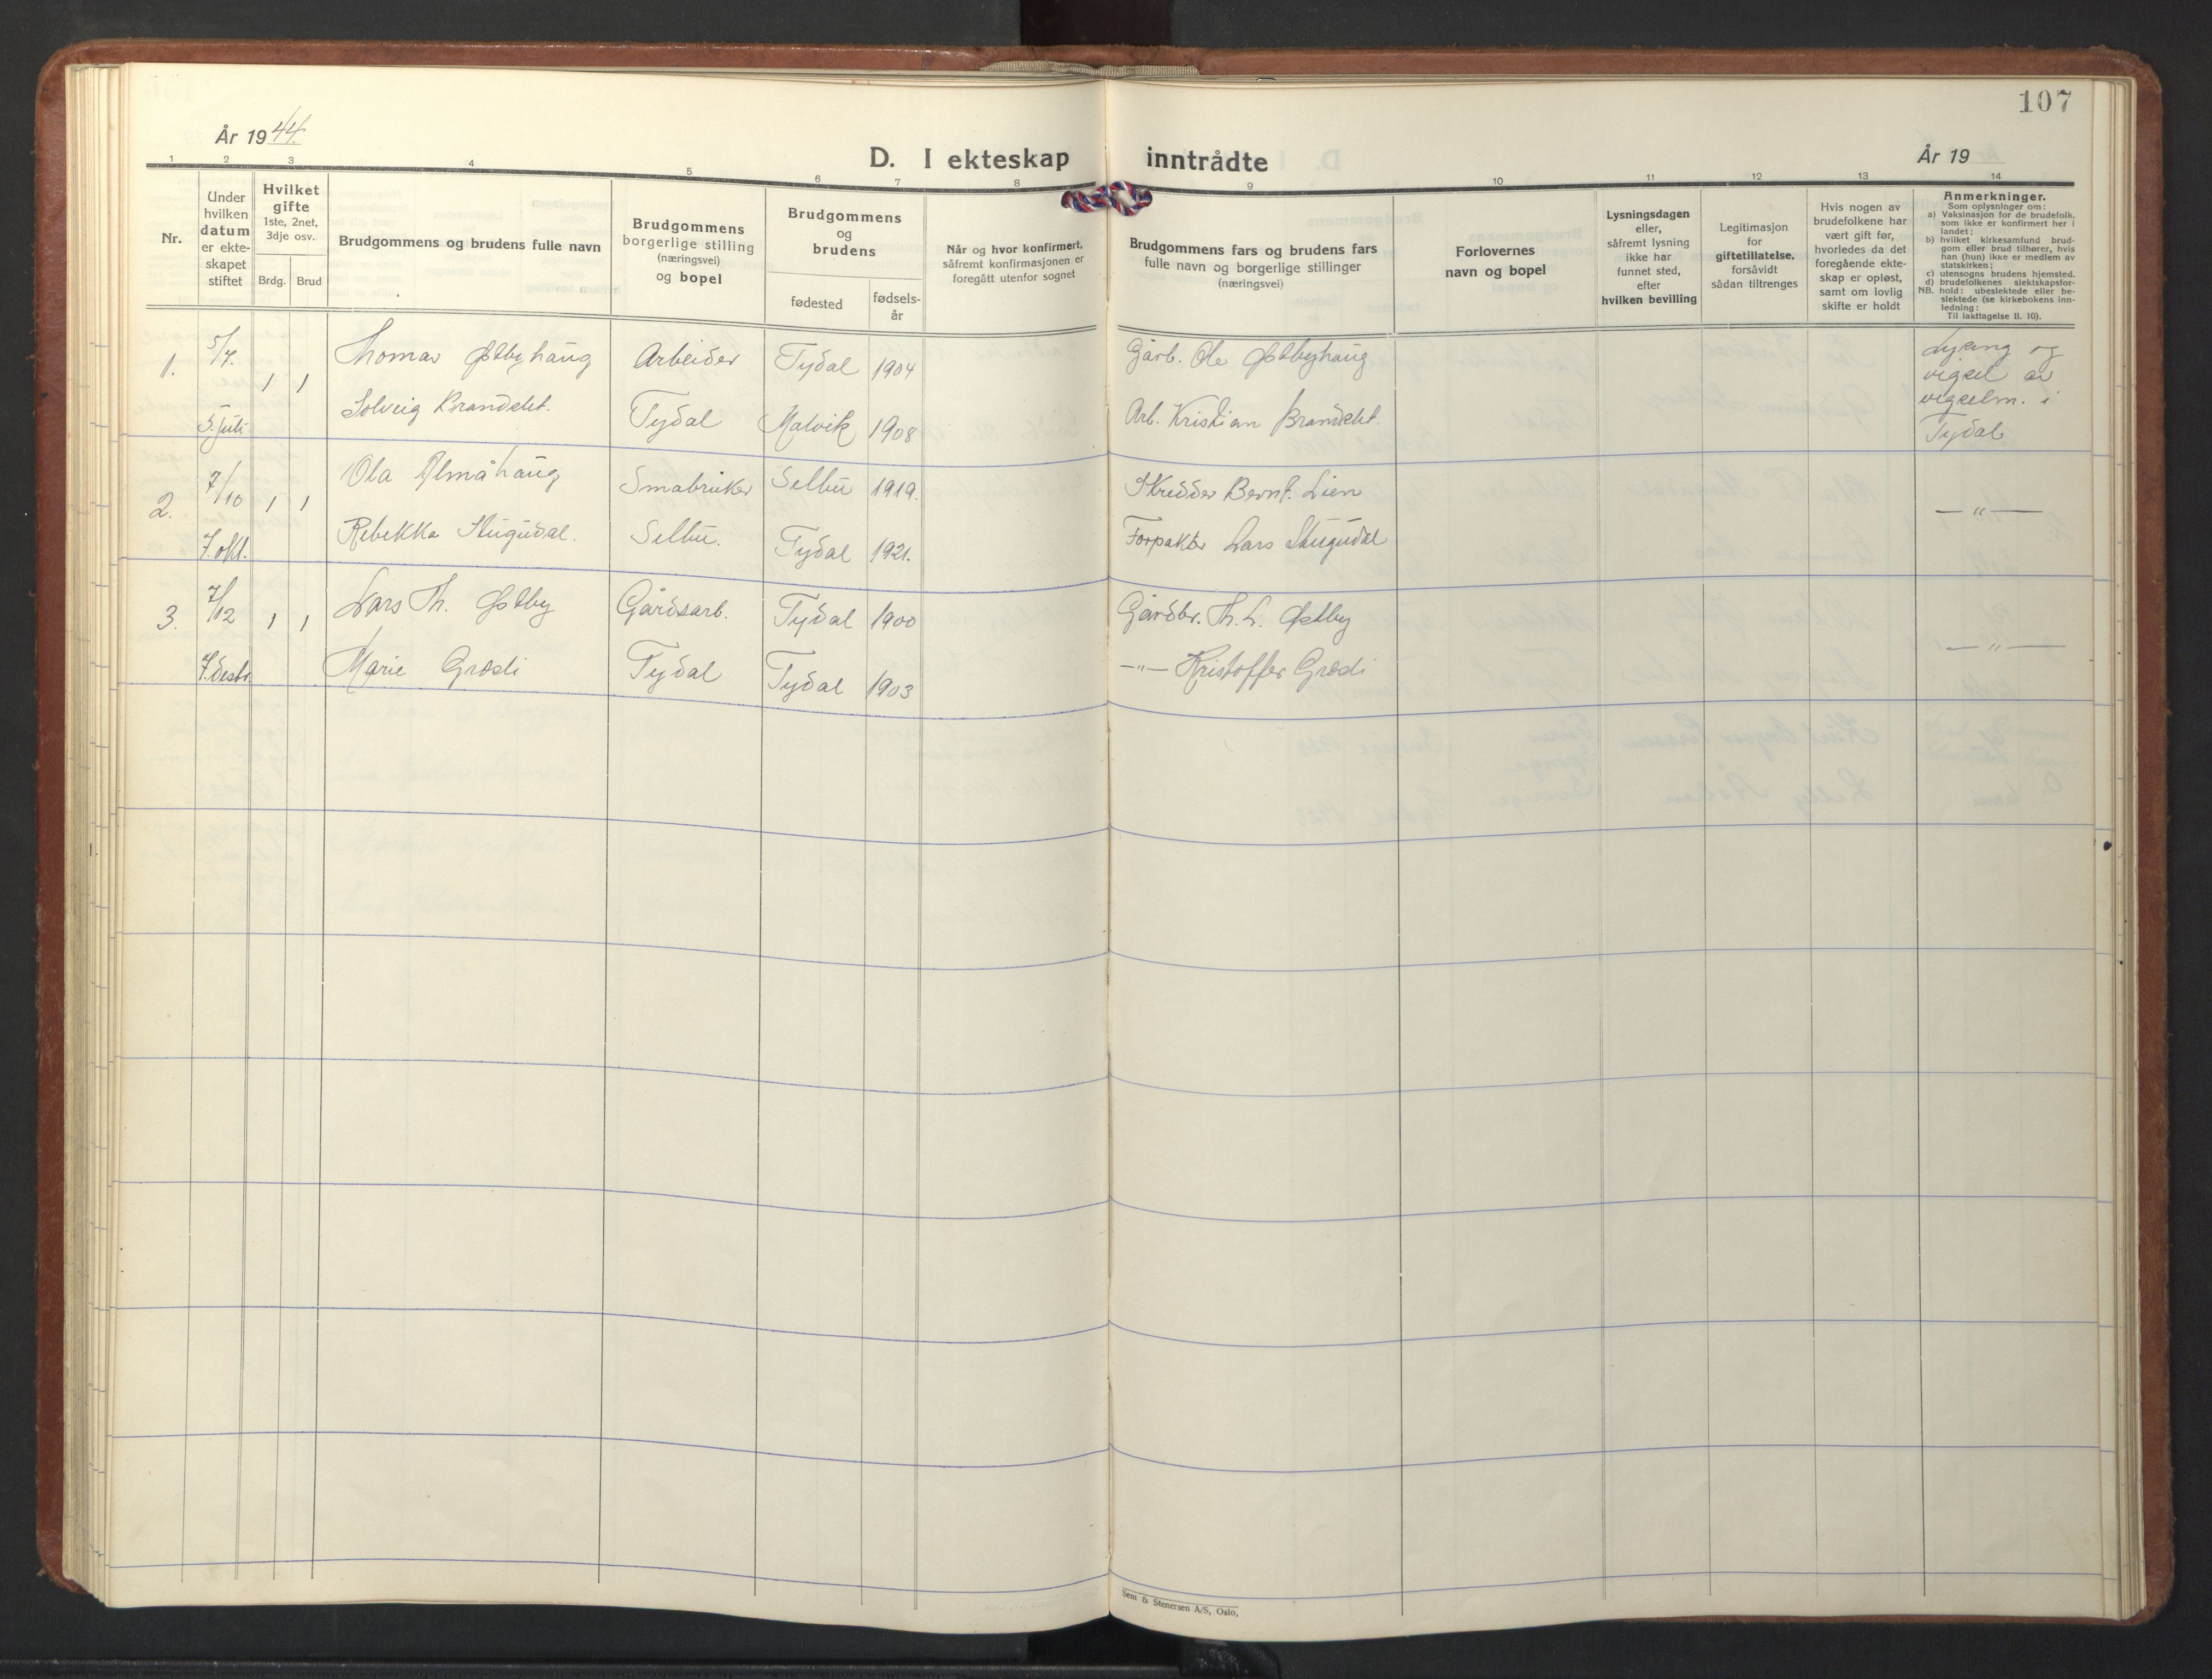 107
År 1944.
D. I ekteskap inntrådte
År 19
1 2 3 4 5 6 7 8 9 10 11 12 13 14
Nr.
Under
hvilken
datum
er ekte-
skapet
stiftet
Hvilket
gifte
1ste, 2net,
3dje osv.
Brdg. Brud
Brudgommens og brudens fulle navn
Brudgommens
borgerlige stilling
(næringsvei)
og bopel
Brudgommens
og
brudens
fødested
fødsels-
år
Når og hvor konfirmert,
såfremt konfirmasjonen er
foregått utenfor sognet
Brudgommens fars og brudens fars
fulle navn og borgerlige stillinger
(næringsvei)
Forlovernes
navn og bopel
Lysningsdagen
eller,
såfremt lysning
ikke har
funnet sted,
efter
hvilken bevilling
Legitimasjon
for
giftetillatelse,
forsåvidt
sådan tiltrenges
Hvis nogen av
brudefolkene har
vært gift før,
hvorledes da det
foregående ekte-
skap er opløst,
samt om lovlig
skifte er holdt
Anmerkninger.
Som oplysninger om:
a) Vaksinasjon for de brudefolk,
som ikke er konfirmert her i
landet;
b) hvilket kirkesamfund brud-
gom eller brud tilhører, hvis
han (hun) ikke er medlem av
statskirken;
c) utensogns brudens hjemsted.
d) brudefolkenes slektskapsfor-
NB. hold: ubeslektede eller be-
slektede (se kirkebokens inn-
ledning:
Til iakttagelse II. 10).
1. 5/7. 1 1 Thomas Østbyhaug Arbeider Tydal 1904 Gårb. Ole Østbyhaug Lysing og
vigsel av
5. juli Solveig Brandslet. Tydal Malvik 1908 Arb. Kristian Brandslet. vigselm. i
Tydal
2. 7/10 1 1 Ola Almåhaug Småbruker Selbu 1919. Skredder Bernt. Lien —"—
7. okt. Rebekka Stugudal. Selbu. Tydal 1921. Forpakter Lars Stugudal
3. 7/12 1 1 Lars Th. Østby Gårdsarb. Tydal 1900 Gårdbr. Th. L. Østby —"—
7. desbr. Marie Grødi Tydal Tydal 1903 —"— Kristoffer Grødi
Sem & Stenersen A/S, Oslo.